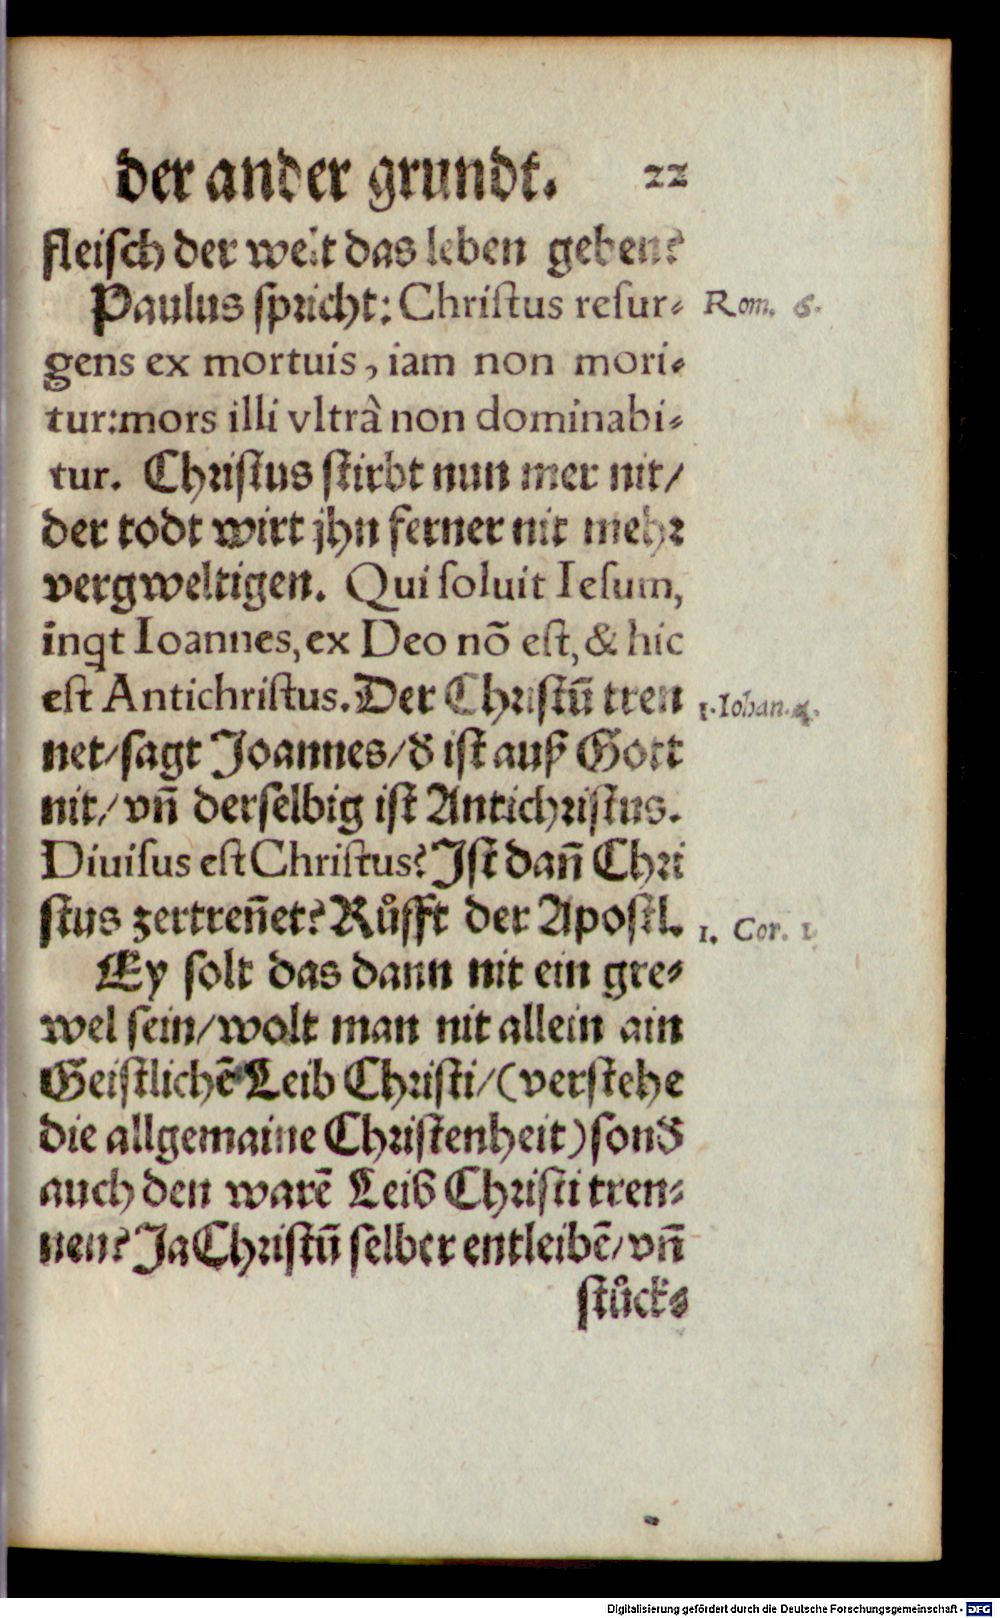 der ander grundt. 22
fleisch der welt das leben geben?
Paulus spricht: Christus resur⸗ Rom. 6.
gens ex mortuis, iam non mori⸗
tur: mors illi vltrâ non dominabi⸗
tur. Christus stirbt nun mer nit/
der todt wirt jhn ferner nit mehr
vergweltigen. Qui soluit Iesum,
inqt Ioannes, ex Deo nõ est, & hic
est Antichristus. Der Christũ tren 1. Iohan. 4.
net/sagt Joannes/ď ist auß Gott
nit/ vñ derselbig ist Antichristus.
Diuisus est Christus? Ist dañ Chri
stus zertreñet? Růfft der Apostl. 1. Cor. 1.
Ey solt das dann nit ein gre⸗
wel sein/wolt man nit allein ain
Geistlichẽ Leib Christi/(verstehe
die allgemaine Christenheit) sonď
auch den warẽ Leib Christi tren⸗
nen? Ja Christũ selber entleibẽ/ vñ
stůck⸗
Digitalisierung gefördert durch die Deutsche Forschungsgemeinschaft - DFG